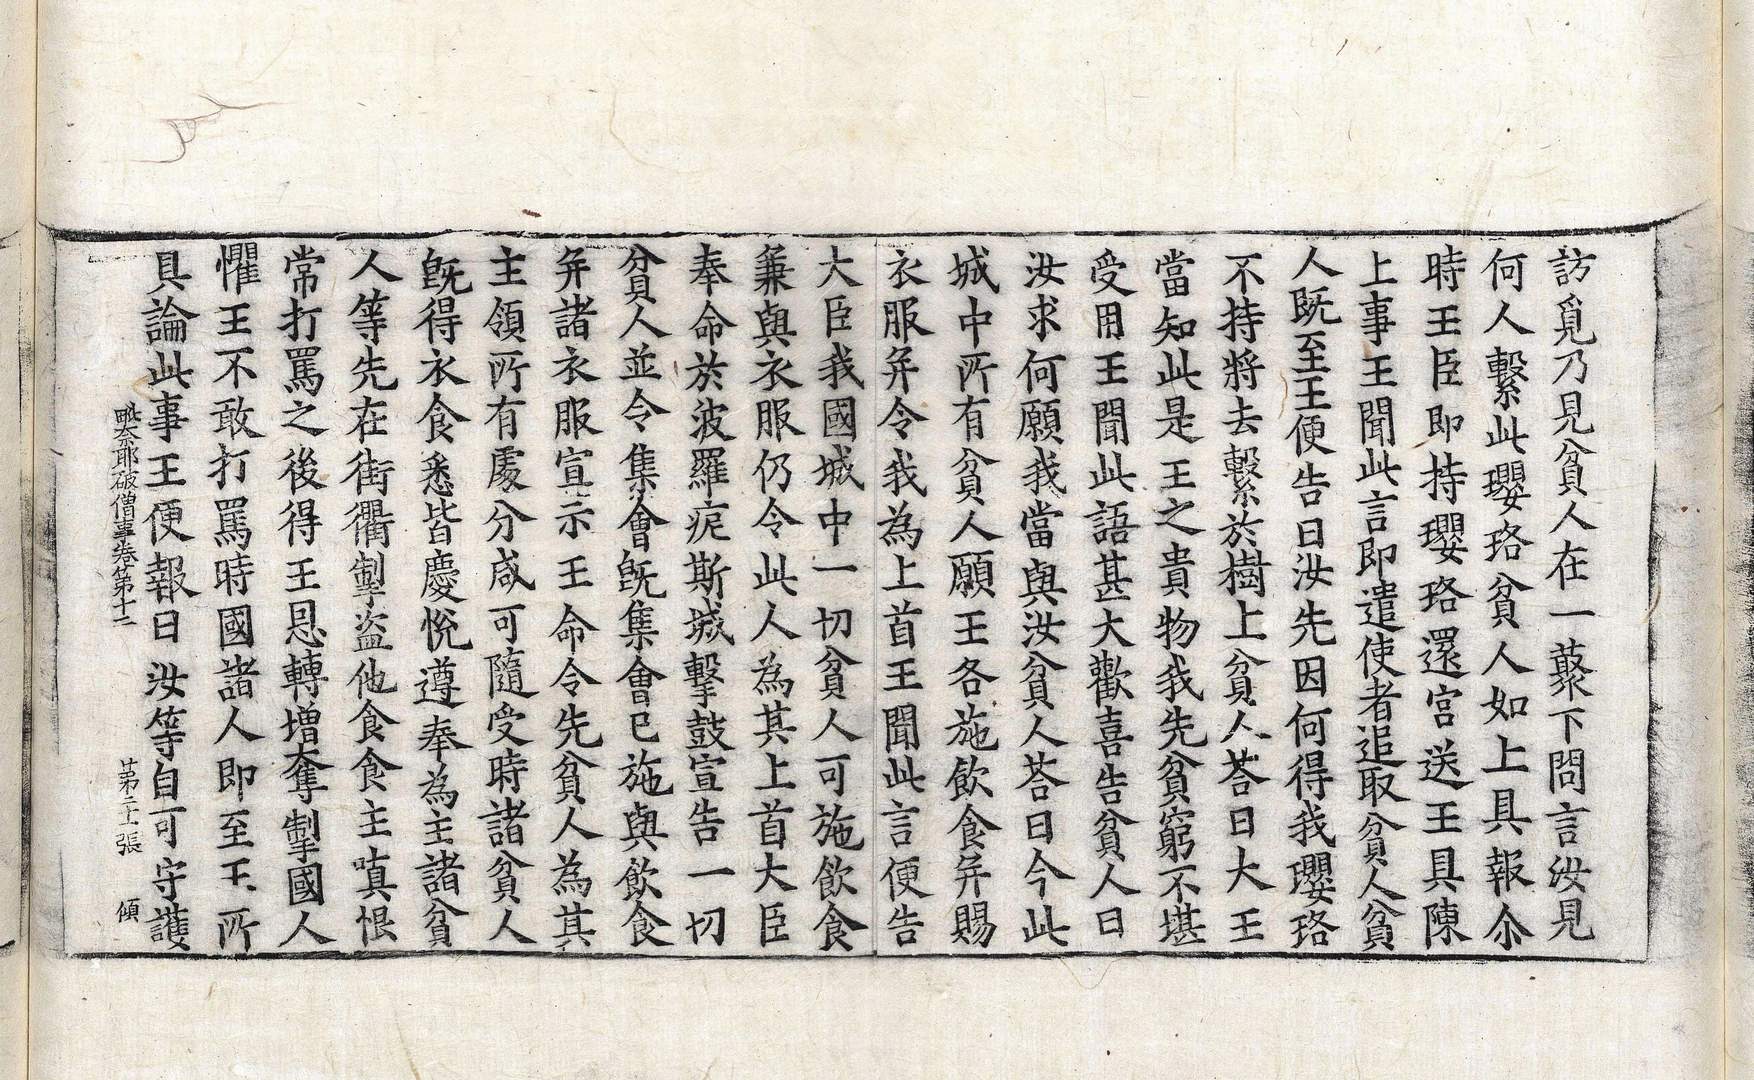 訪覓乃見貧人在一藂下問言汝見
何人繫此瓔珞貧人如上具報尒
時王臣即持瓔珞還宫送王具陳
上事王聞此言即遣使者追取貧人貧
人既至王便告曰汝先因何得我瓔珞
不持將去繫於樹上貧人荅曰大王
當知此是王之貴物我先貧窮不堪
受用王聞此語甚大歡喜告貧人曰
汝求何願我當與汝貧人荅曰今此
城中所有貧人願王各施飲食并賜
衣服并令我為上首王聞此言便告
大臣我國城中一切貧人可施飲食
兼與衣服仍令此人為其上首大臣
奉命於波羅痆斯城擊鼓宣告一切
貧人並令集會旣集會已施與飲食
并諸衣服宣示王命令先貧人為其
主領所有處分咸可隨受時諸貧人
旣得衣食悉皆慶悅遵奉為主諸貧
人等先在街衢掣盜他食食主嗔恨
常打罵之後得王恩轉增奪掣國人
懼王不敢打罵時國諸人即至王所
具論此事王便報曰汝等自可守護
毗奈耶破僧事卷第十二 第二十張 傾